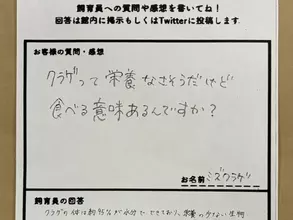 飼育員への質問や感想を書いてね！
回答は館内に掲示もしくはTwitterに投稿します.
お客様の質問・感想
クラゲって栄養なさそうだけど
食べる意味あるんですか？
お名前 ミズクラゲ
飼育員の回答
クラゲの体は約95%が水分でできており、栄養の少ない生物